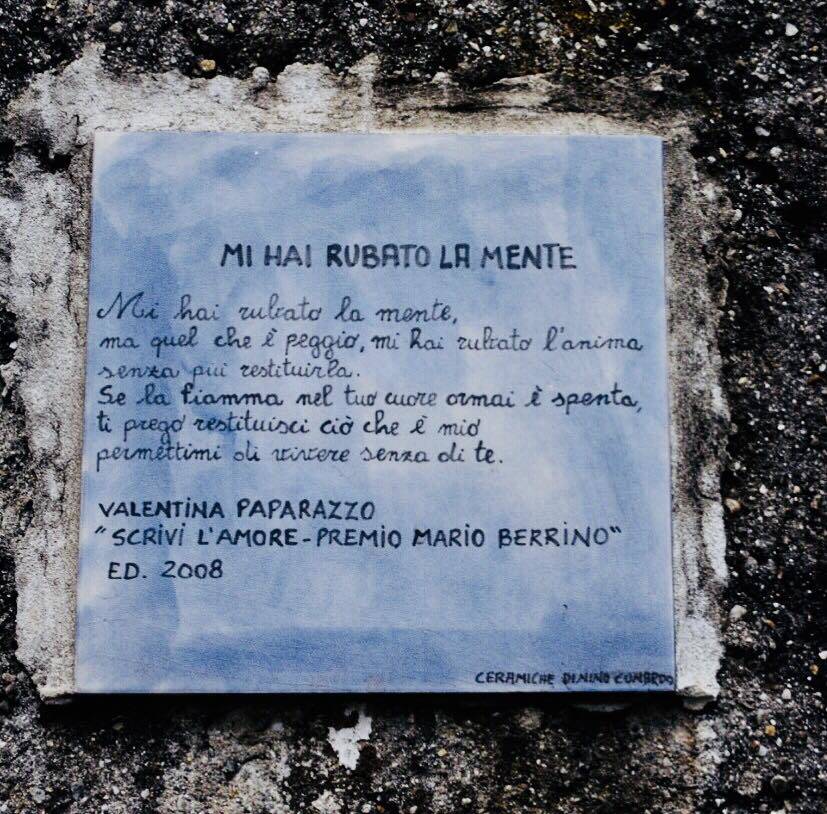 MI HAI RUBATO LA MENTE
Mi hai rubato la mente,
ma quel che è peggio, mi hai rubato l'anima
senza più restituirla.
Se la fiamma nel tuo cuore ormai è spenta,
ti prego restituisci ciò che è mio
permettimi di vivere senza di te.
VALENTINA PAPARAZZO
"SCRIVI L'AMORE-PREMIO MARIO BERRINO"
ED. 2008
CERAMICHE DI NINO